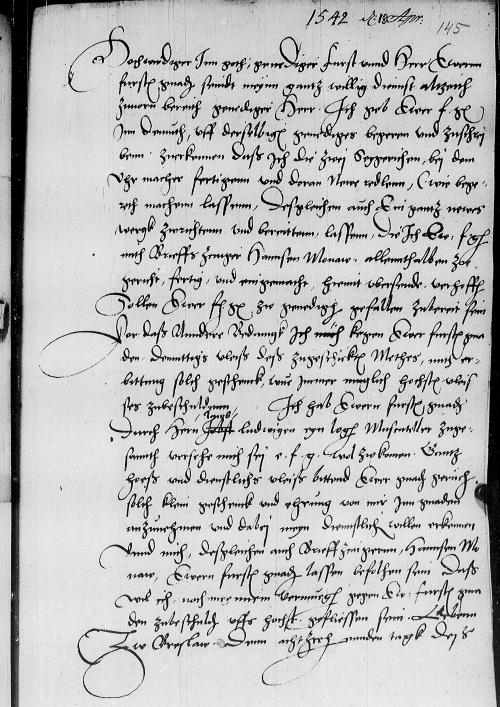 1542 18 Apr.
145
Hochwirdiger Inn goth, genediger Furst unnd Herr, Ewern
furstn gnadn seindt meyn gantz willig dienst altzeith
zuvorn bereith genediger Herr. Ich geb Ewer f. g.
Inn demuth, uff derselbign genediges begeren und zuschrei
benn zuerkennen daß Ich die zwei, bei dem
Uhrmacher fertigenn und doran Newe (wie bege
reth machenn lassenn, Desgleichen auch Ein gantz newes
wergk zurichtenn und bereittenn, lassenn, die Ich Ew. f. g.
mith Brieffs zeiger Hannsen Monaw, allennthalben zu
gericht, fertig, und eingemacht, hiemit ubersende, verhoffe
Sollen Ewer f. g. zu genedign gefallen zubereit sein
Vor daß Andere Bedanngk Ich mich kegen Ewer furstn gna
den, demuttigs vleiß deß zugeschickten Methes, mith er
bittung solch geschenck, wue Immer muglich hochstn vleis
ses zubeschuldenn. Ich hab Ewern furstn gnadn
durch Hern Ludwigen eyn logl Muscateller zuge
sannth versehe mich sei e. f. g. wol zukomen. Gantz
hoess und dienstlichs vleiß bittend Ewer gnadn geruch
solch klein geschenck und ehrung von mir Inn gnaden
anzunehmen und dabei meyn dienstlichn willen erkennen
Unnd mich, desgleichen auch Brieffzeigernn, Hannsen Mo
naw, Ewern furstn gnadn lassen befolhen sein Daß
wil ich, nach meynem vermugn gegen Ew. furstn gna
den zubeschuldn uffs hochst geflissen sein. Gebenn
Zw Breslaw. Denn achtzehenden tagk deß